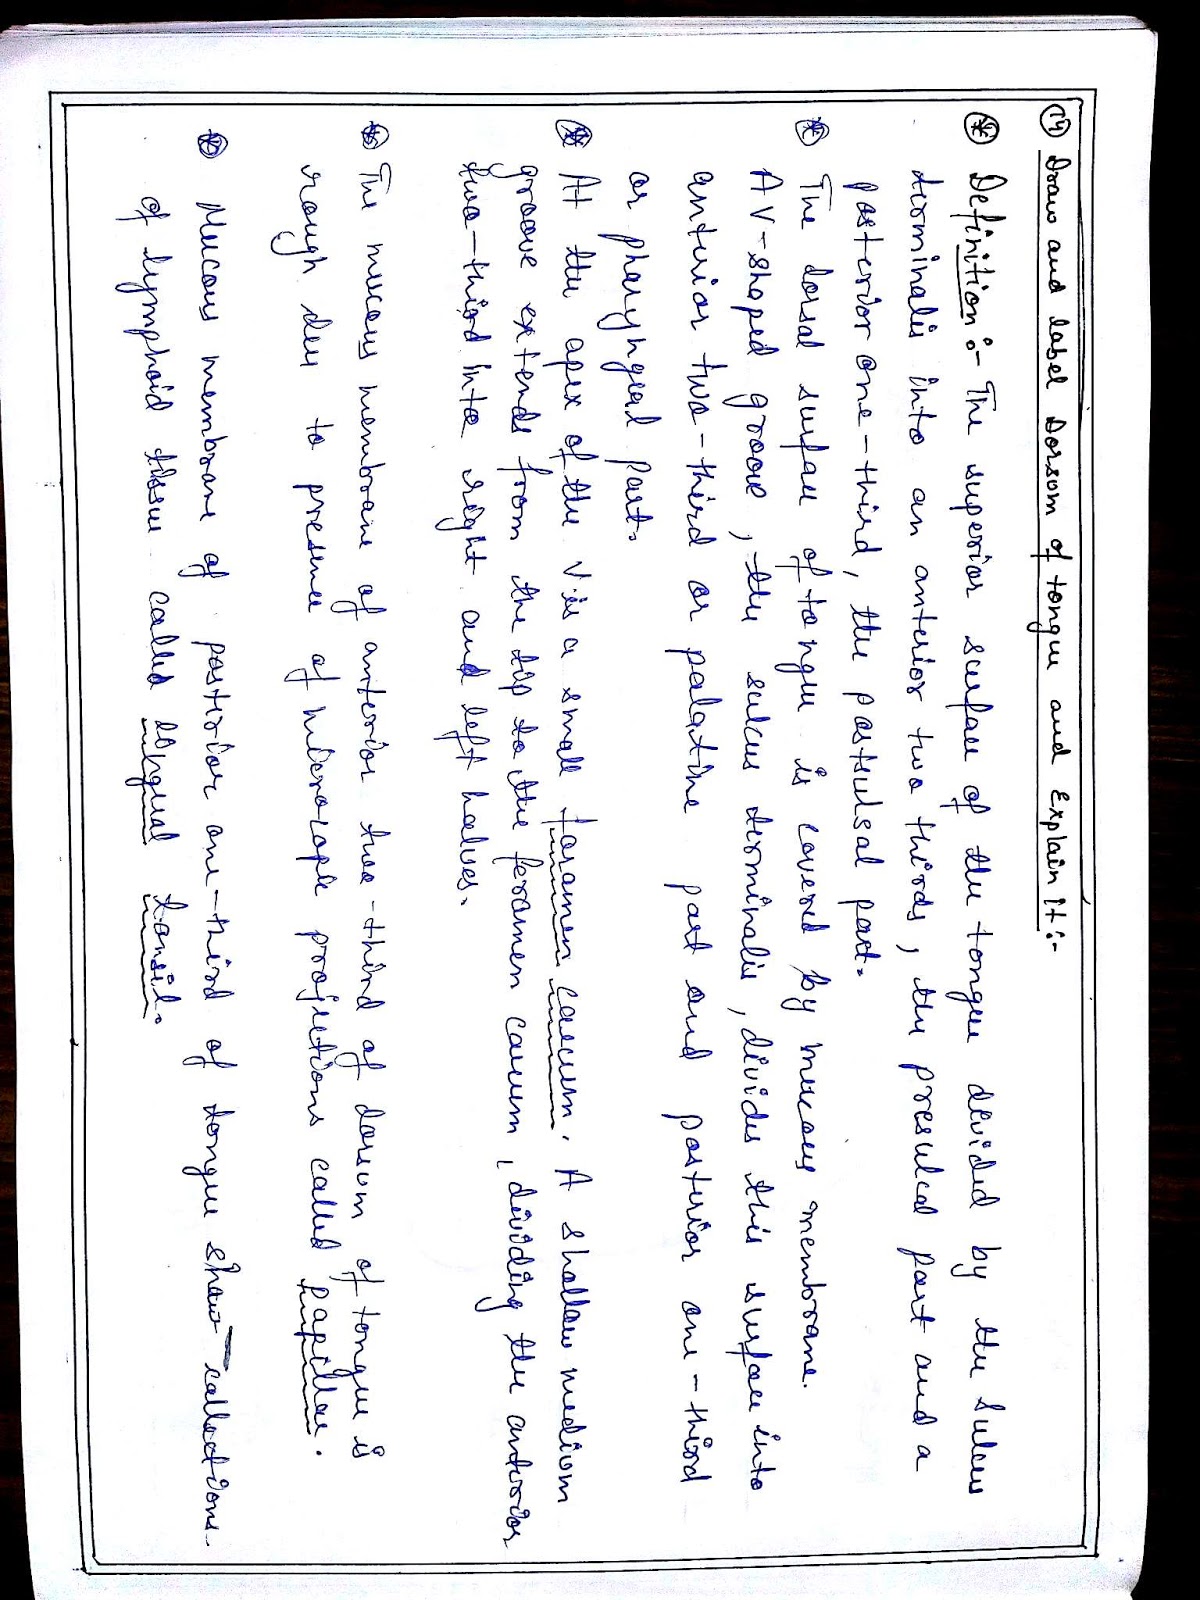 14) Draw and label Dorsom of tongue and Explain it:-
Definition :- The superior surface of the tongue devided by the Sulcus
terminalis into an anterior two thirds, the presulcal part and a
posterior one-third, the postsulsal part.
The dorsal surface of tongue is covered by mucous membrane.
A V-shaped groove, the sulcus terminalis, divides this surface into
anterior two-third or palatine part and posterior one-third
or pharyngeal part.
At the apex of the V is a small foramen caecum. A shallow medium
groove extends from the tip to the foramen caecum, dividing the anterior
two-third into right and left halves.
The mucous membrane of anterior two-third of dorsum of tongue is
rough due to presence of microscopic projections called papillae.
Mucous membrane of posterior one-third of tongue show collections
of lymphoid tissue called lingual tonsil.